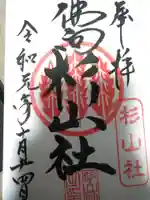 奉拝
杉山社
杉山社
令和元年十月十四日